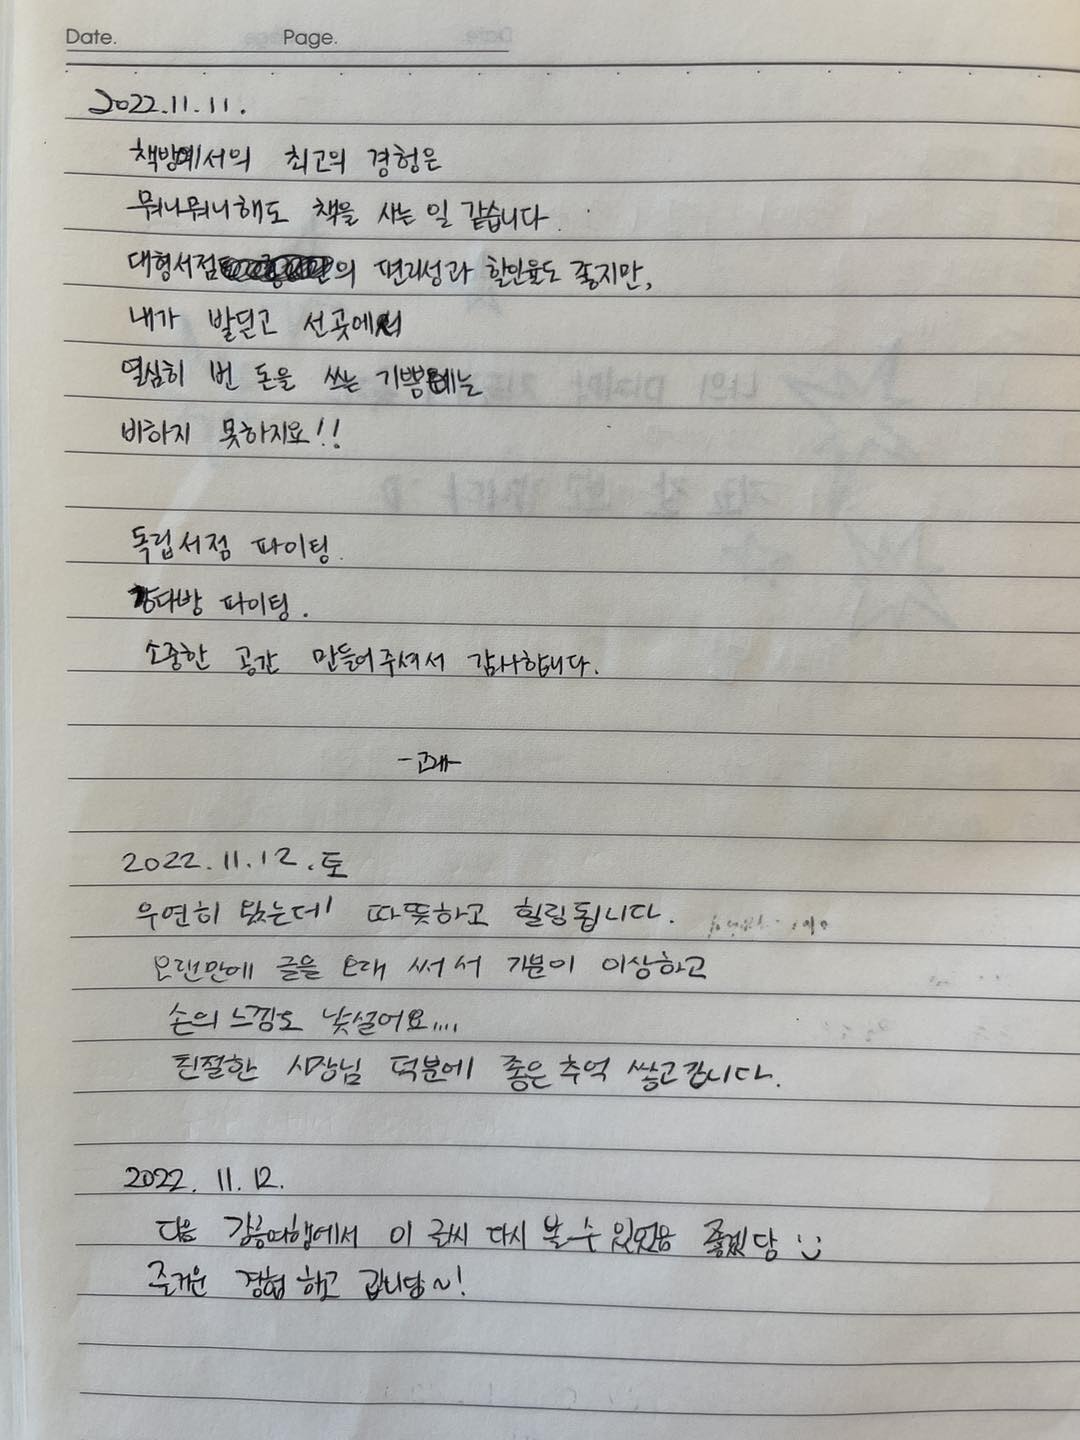 Date. Page.
2022.11.11.
책방에서의 최고의 경험은
뭐니뭐니해도 책을 사는 일 같습니다.
대형서점의 편리성과 할인율도 좋지만,
내가 발딛고 선곳에서
열심히 번 돈을 쓰는 기쁨에는
비하지 못하지요!!
독립서점 파이팅.
강다방 파이팅.
소중한 공간 만들어주셔서 감사합니다.
-고래-
2022.11.12.토
우연히 왔는데 따뜻하고 힐링됩니다.
오랜만에 글을 오래 써서 기분이 이상하고
손의 느낌도 낯설어요....
친절한 사장님 덕분에 좋은 추억 쌓고갑니다.
2022. 11. 12.
다음 강릉여행에서 이 글씨 다시 볼 수 있었음 좋겠당 :)
즐거운 경험 하고 갑니당~!